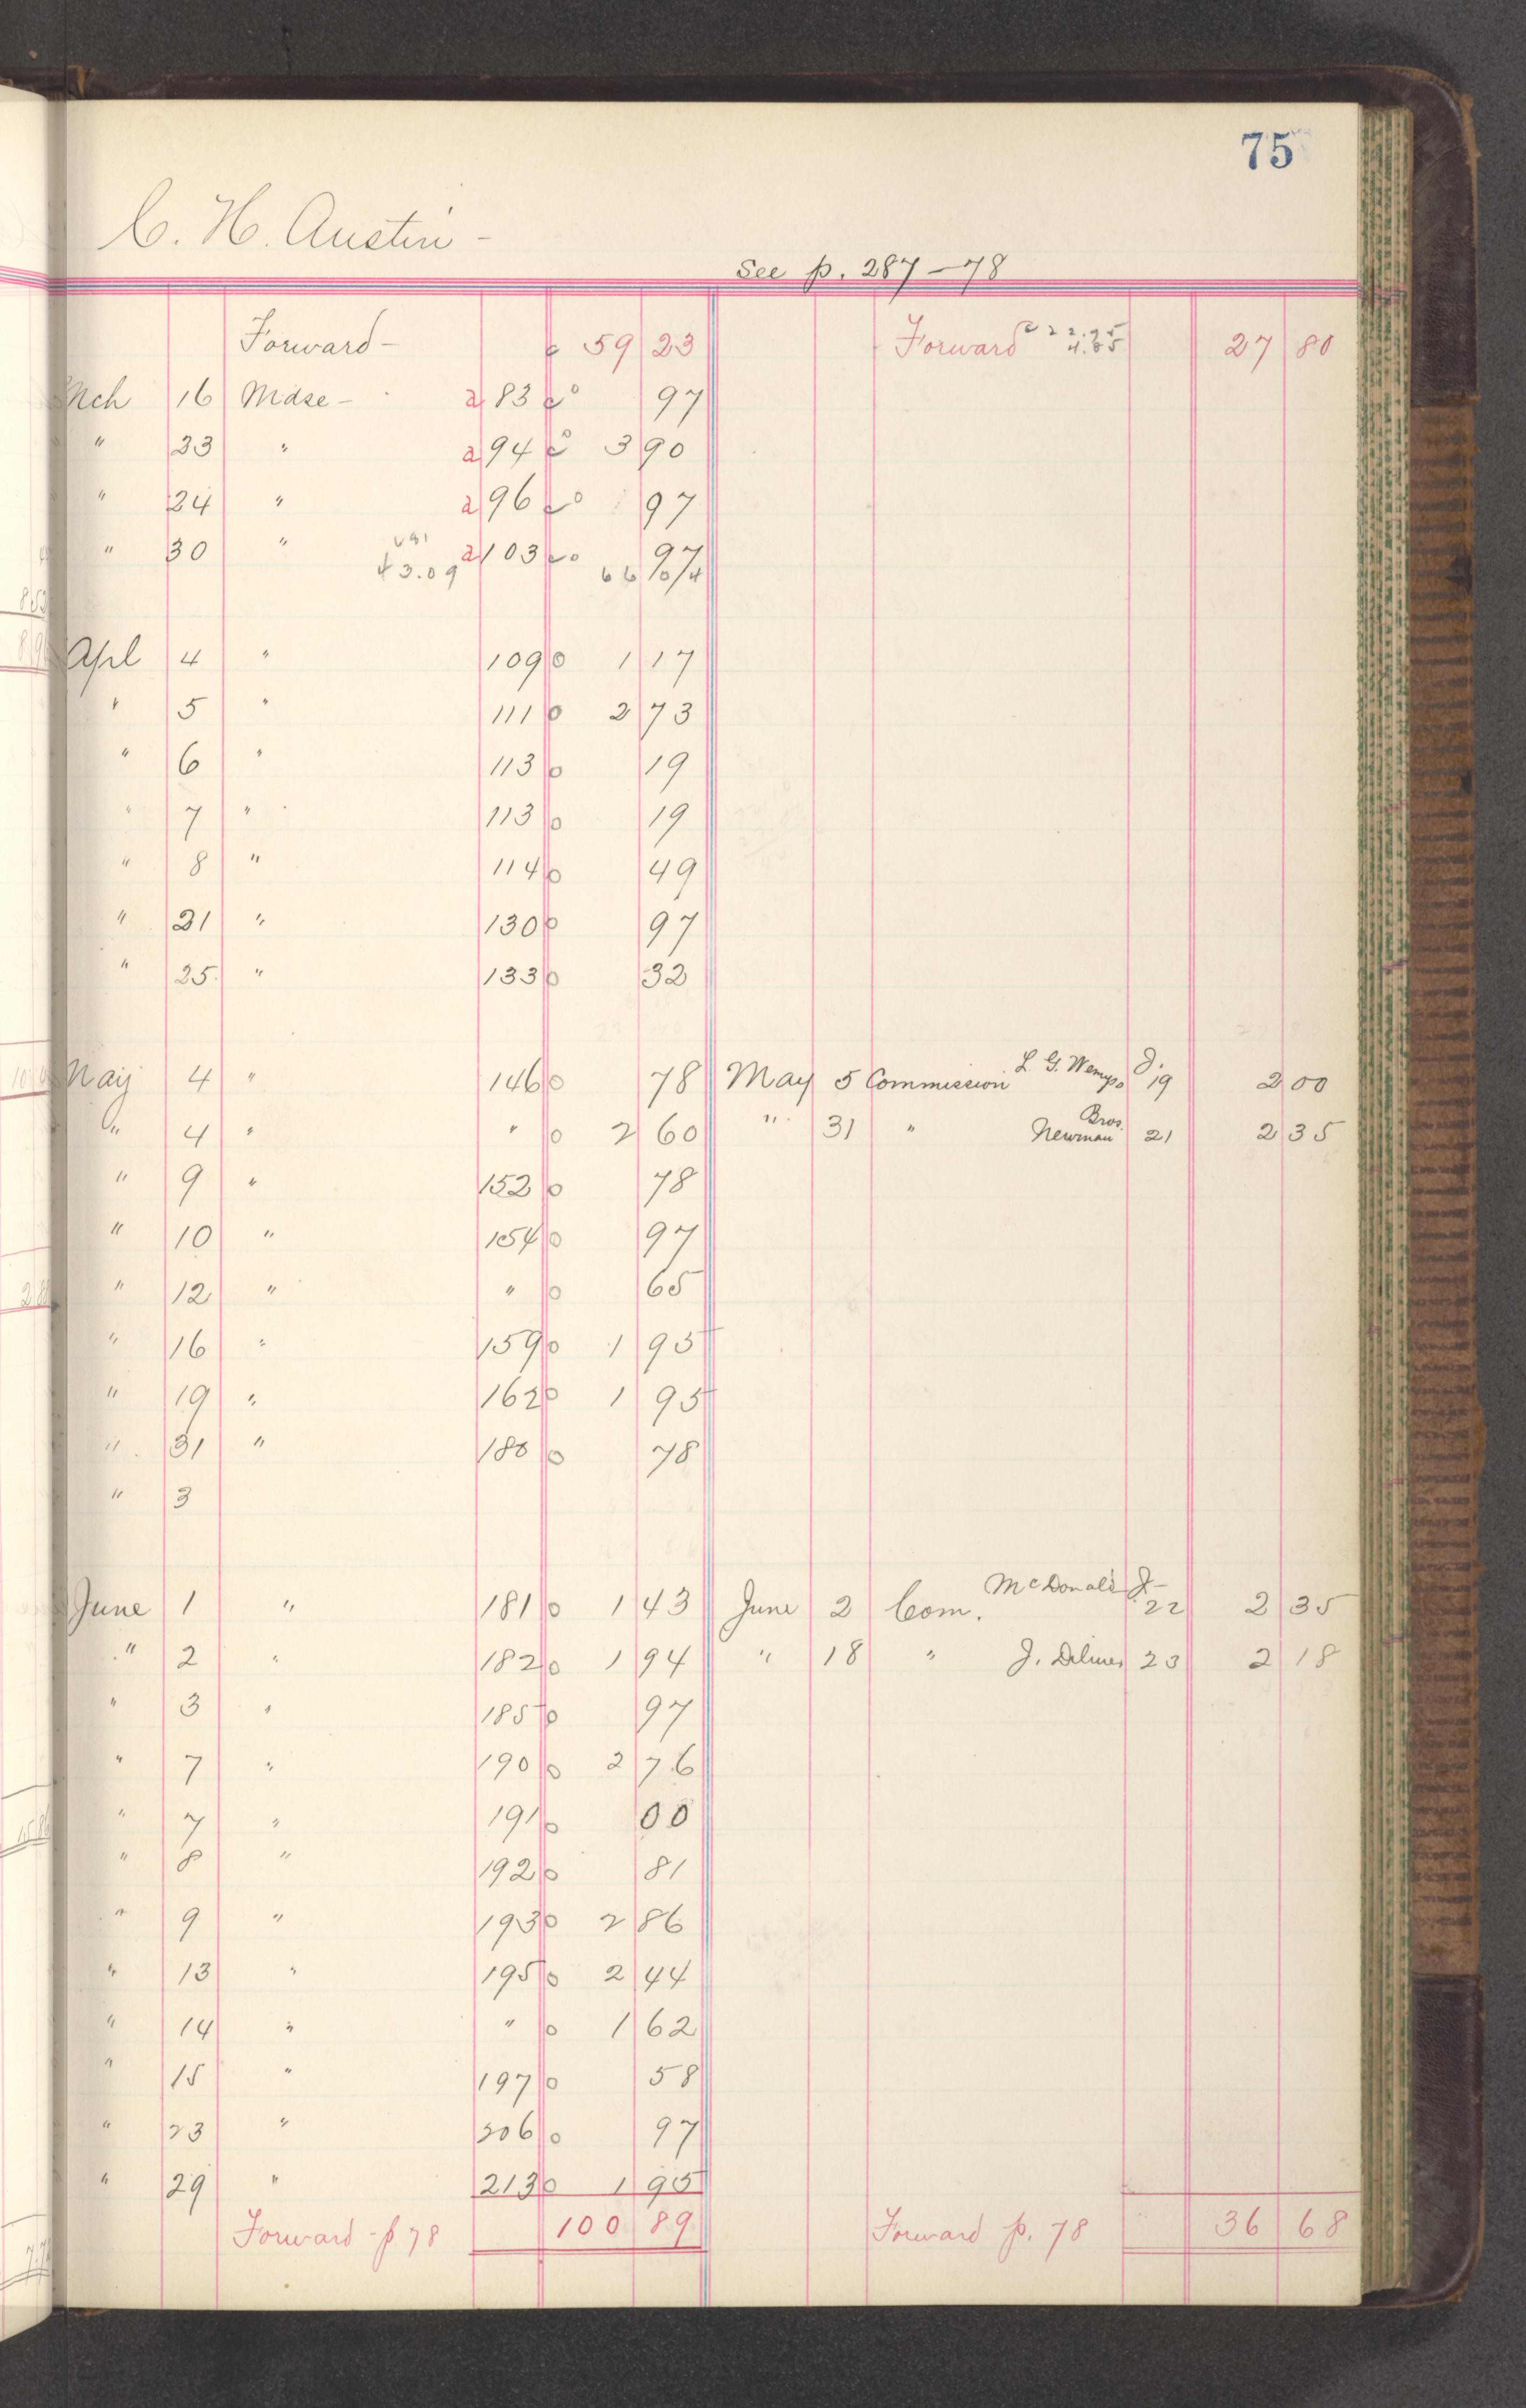 75
C. H. Austin -
See p. 287-78
Forward - c 59 23 Forward c 22.95 27 80
4.85
Mch 16 Mdse - a 83 c o 97
" 23 " a 94 c o 3 90
" 24 " a 96 c o 97
" 30 " a 103 c o 97
43.09 66 04
Apl 4 " 109 o 1 17
" 5 " 111 o 2 73
" 6 " 113 o 19
" 7 " 113 o 19
" 8 " 114 o 49
" 21 " 130 o 97
" 25 " 133 o 32
May 4 " 146 o 78 May 5 Commission L. G. Wemps J. 19 2 00
" 4 " " o 2 60 " 31 " Newman Bros. 21 2 35
" 9 " 152 o 78
" 10 " 154 o 97
" 12 " " o 65
" 16 " 159 o 1 95
" 19 " 162 o 1 95
" 31 " 180 o 78
" 3
June 1 " 181 o 1 43 June 2 Com. McDonald J- 22 2 35
" 2 " 182 o 1 94 " 18 " J. 23 2 18
" 3 " 185 o 97
" 7 " 190 o 2 76
" 7 " 191 o 00
" 8 " 192 o 81
" 9 " 193 o 2 86
" 13 " 195 o 2 44
" 14 " " o 1 62
" 15 " 197 o 58
" 23 " 206 o 97
" 29 " 213 o 1 95
Forward - p 78 100 89 Forward p. 78 36 68